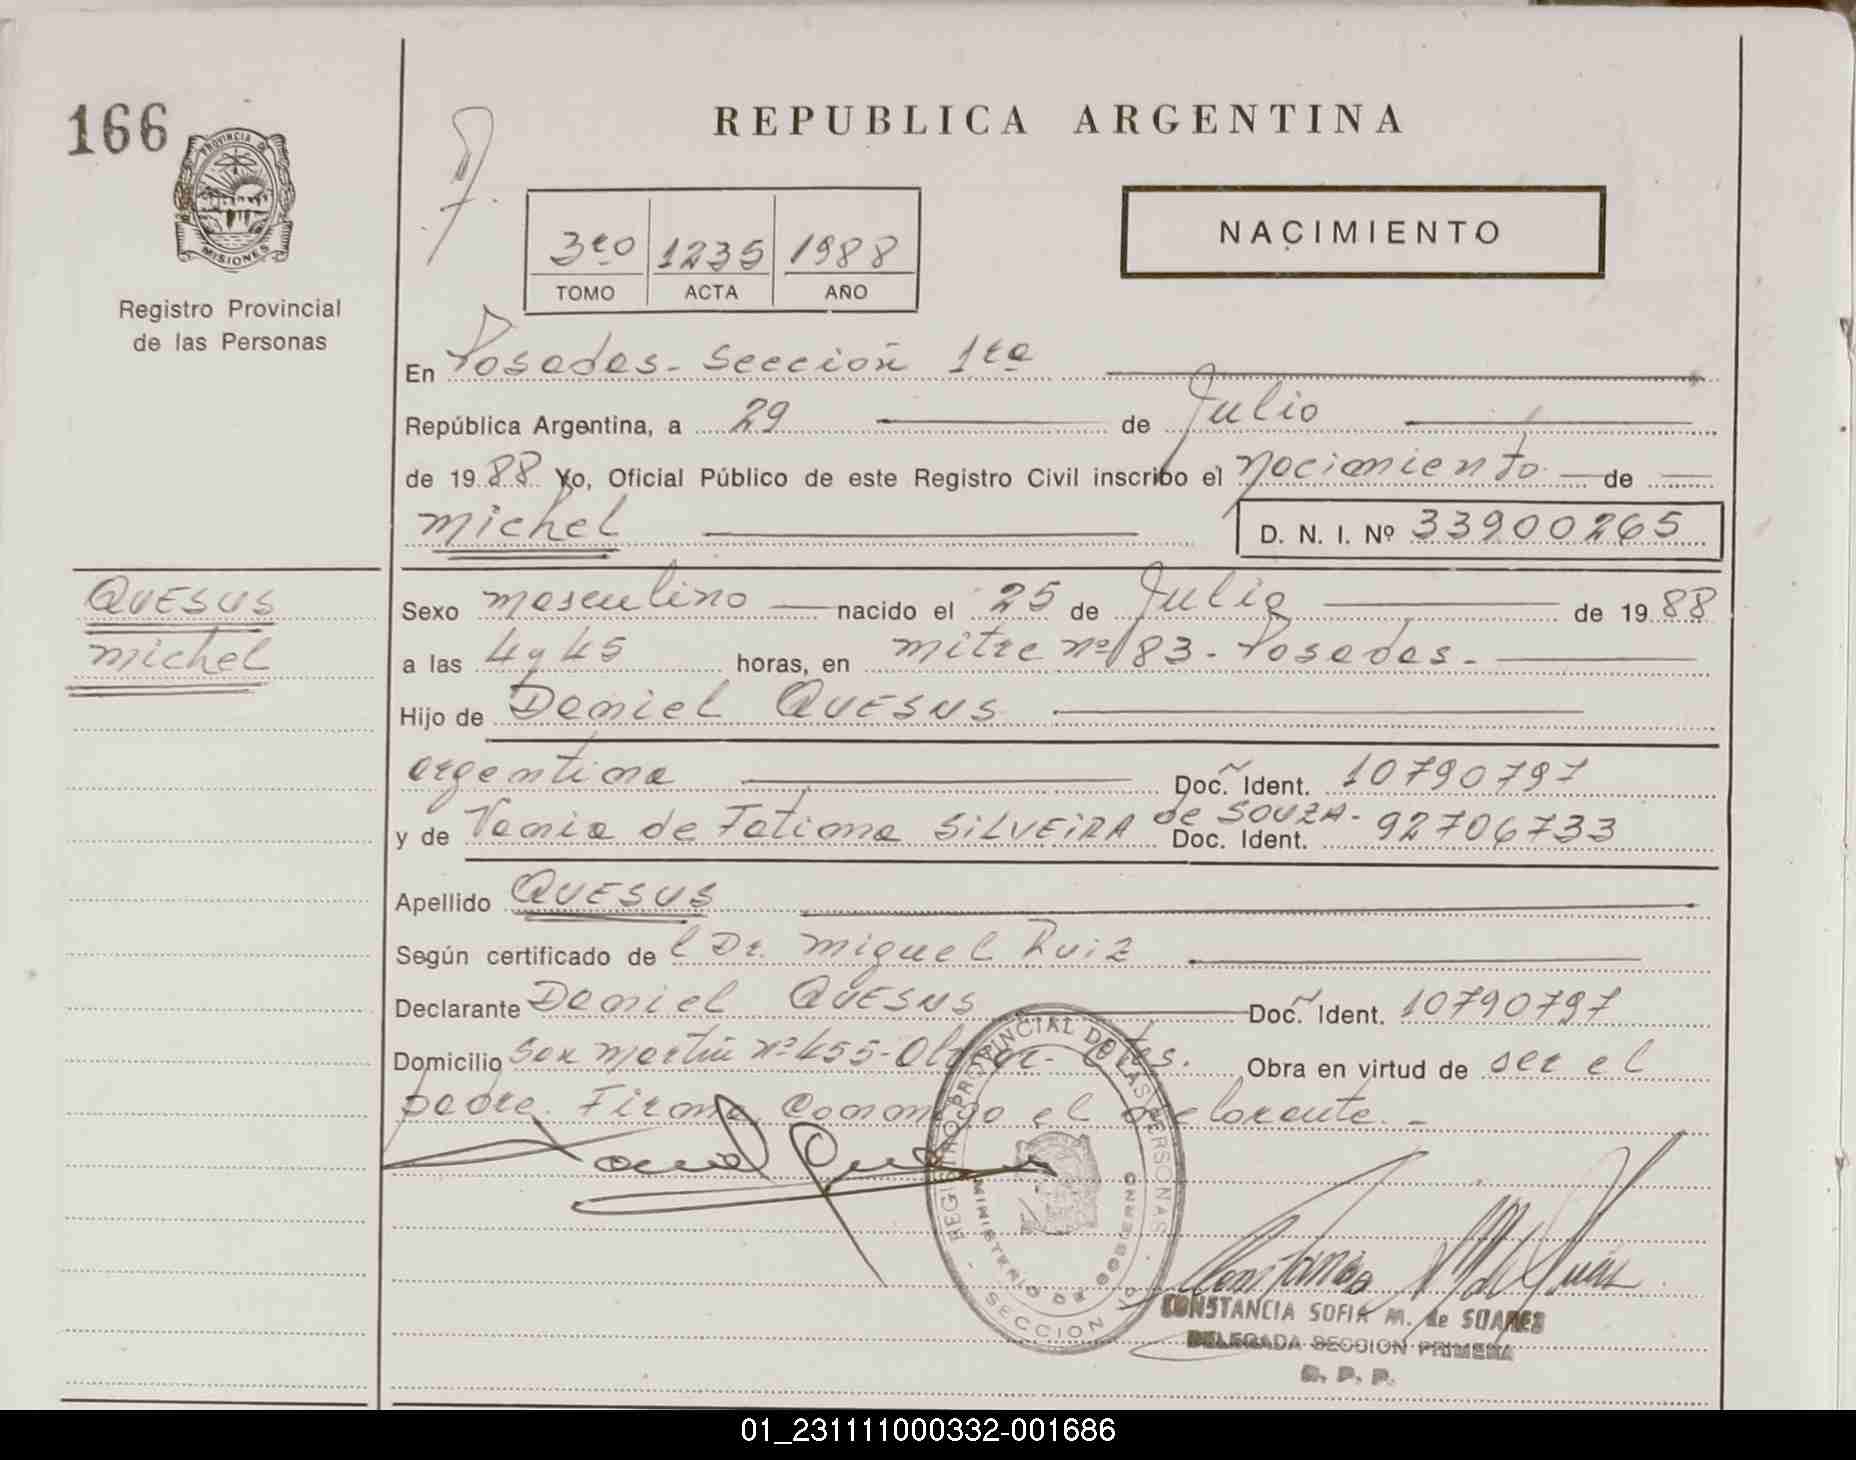 166
PROVINCIA DE
MISIONES
Registro Provincial
de las Personas
REPUBLICA ARGENTINA
NACIMIENTO
3ro 1235 1988
TOMO ACTA AÑO
En Posadas - Sección 1ra
República Argentina, a 29 de Julio
de 1988 Yo, Oficial Público de este Registro Civil inscribo el nacimiento de
michel D. N. I. Nº 33900265
QUESUS
michel
Sexo masculino nacido el 25 de Julio de 1988
a las 4 y 45 horas, en mitre nº 183 - Posadas -
Hijo de Daniel QUESUS
argentina Doc. Ident. 10790797
y de Vania de Fatima SILVEIRA de SOUZA - Doc. Ident. 92706733
Apellido QUESUS
Según certificado de l Dr. miguel Ruiz
Declarante Daniel QUESUS Doc. Ident. 10790797
Domicilio San martin nº 455 - Obrar en virtud de ser el
padre. Firma conmigo el declarante. -
REGISTRO PROVINCIAL DE LAS PERSONAS
MINISTERIO DE GOBIERNO
SECCION
CONSTANCIA SOFIA M. de SUARES
DELEGADA SECCION PRIMERA
R. P. P.
01_231111000332-001686